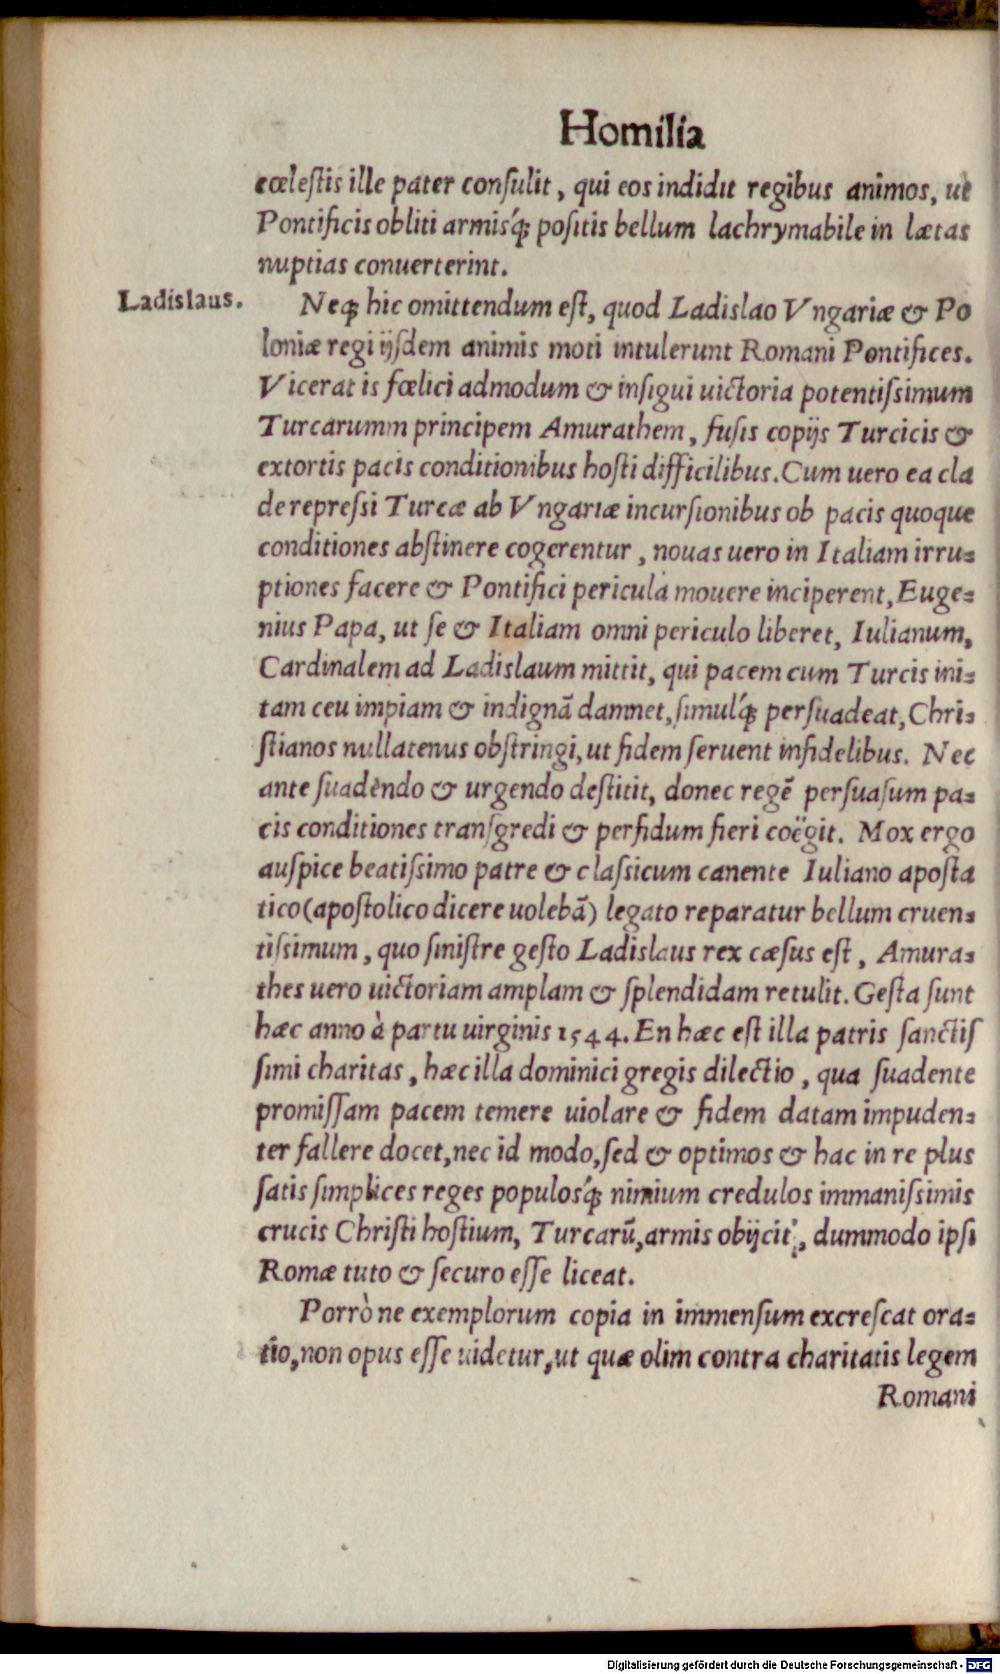 Homilia
cœlestis ille pater consulit, qui eos indidit regibus animos, ut
Pontificis obliti armisq́ꝫ positis bellum lachrymabile in lætas
nuptias conuerterint.
Ladislaus.
Neqꝫ hic omittendum est, quod Ladislao Vngariæ & Po
loniæ regi ijsdem animis moti intulerunt Romani Pontifices.
Vicerat is fœlici admodum & insigui uictoria potentissimum
Turcarumm principem Amurathem, fusis copijs Turcicis &
extortis pacis conditionibus hosti difficilibus. Cum uero ea cla
de repressi Turcæ ab Vngariæ incursionibus ob pacis quoque
conditiones abstinere cogerentur, nouas uero in Italiam irru=
ptiones facere & Pontifici pericula mouere inciperent, Euge=
nius Papa, ut se & Italiam omni periculo liberet, Iulianum,
Cardinalem ad Ladislaum mittit, qui pacem cum Turcis ini=
tam ceu impiam & indignā damnet, simulq́ꝫ persuadeat, Chri=
stianos nullatenus obstringi, ut fidem seruent infidelibus. Nec
ante suadèndo & urgendo destitit, donec regē persuasum pa=
cis conditiones transgredi & perfidum fieri coëgit. Mox ergo
auspice beatissimo patre & classicum canente Iuliano aposta
tico (apostolico dicere uolebā) legato reparatur bellum cruen=
tissimum, quo sinistre gesto Ladislaus rex cæsus est, Amura=
thes uero uictoriam amplam & splendidam retulit. Gesta sunt
hæc anno à partu uirginis 1544. En hæc est illa patris sanctis
simi charitas, hæc illa dominici gregis dilectio, qua suadente
promissam pacem temere uiolare & fidem datam impuden=
ter fallere docet, nec id modo, sed & optimos & hac in re plus
satis simplices reges populosq́ꝫ nimium credulos immanissimis
crucis Christi hostium, Turcarū, armis obijcit, dummodo ipsi
Romæ tuto & securo esse liceat.
Porrò ne exemplorum copia in immensum excrescat ora=
tio, non opus esse uidetur, ut quæ olim contra charitatis legem
Romani
Digitalisierung gefördert durch die Deutsche Forschungsgemeinschaft - DFG